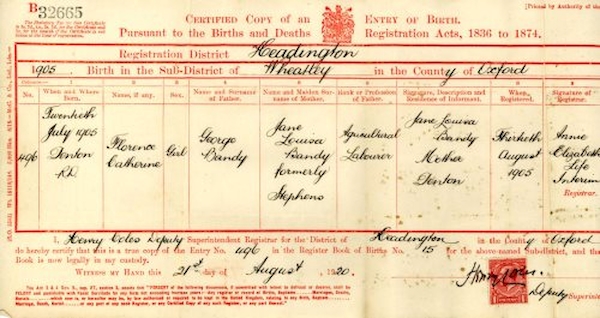 B 32665
CERTIFIED COPY of an ENTRY OF BIRTH.
Pursuant to the Births and Deaths Registration Acts, 1836 to 1874.
[Printed by Authority of
Registration District Headington
1905. Birth in the Sub-District of Wheatley in the County of Oxford
Columns:—
No.
When and Where Born.
Name, if any.
Sex.
Name and Surname of Father.
Name and Maiden Surname of Mother.
Rank or Profession of Father.
Signature, Description and Residence of Informant.
When Registered.
Signature of Registrar.
496
Twentieth
July 1905
Denton
R.D
Florence
Catherine
Girl
George
Bandy
Jane
Louisa
Bandy
formerly
Stephens
Agricultural
Labourer
Jane Louisa
Bandy
Mother
Denton
Thirtieth
August
1905
Annie
Elizabeth
Life
Interim
Registrar.
I, Henry Coles Deputy Superintendent Registrar for the District of Headington in the County of Oxford
do hereby certify that this is a true copy of the Entry No. 496 in the Register Book of Births No. 15 for the above-named Sub-district, and that
Book is now legally in my custody.
WITNESS MY HAND this 21st day of August 1920.
Deputy Superinte